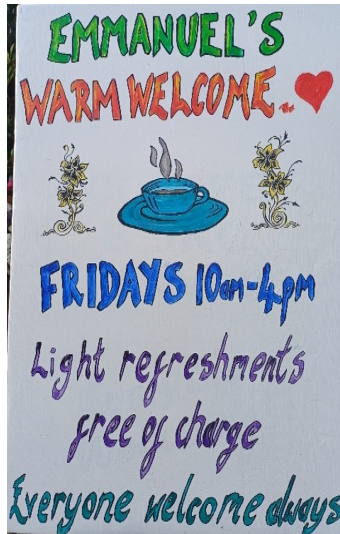 EMMANUEL'S
WARM WELCOME
FRIDAYS 10am-4pm
Light refreshments
free of charge
Everyone welcome always